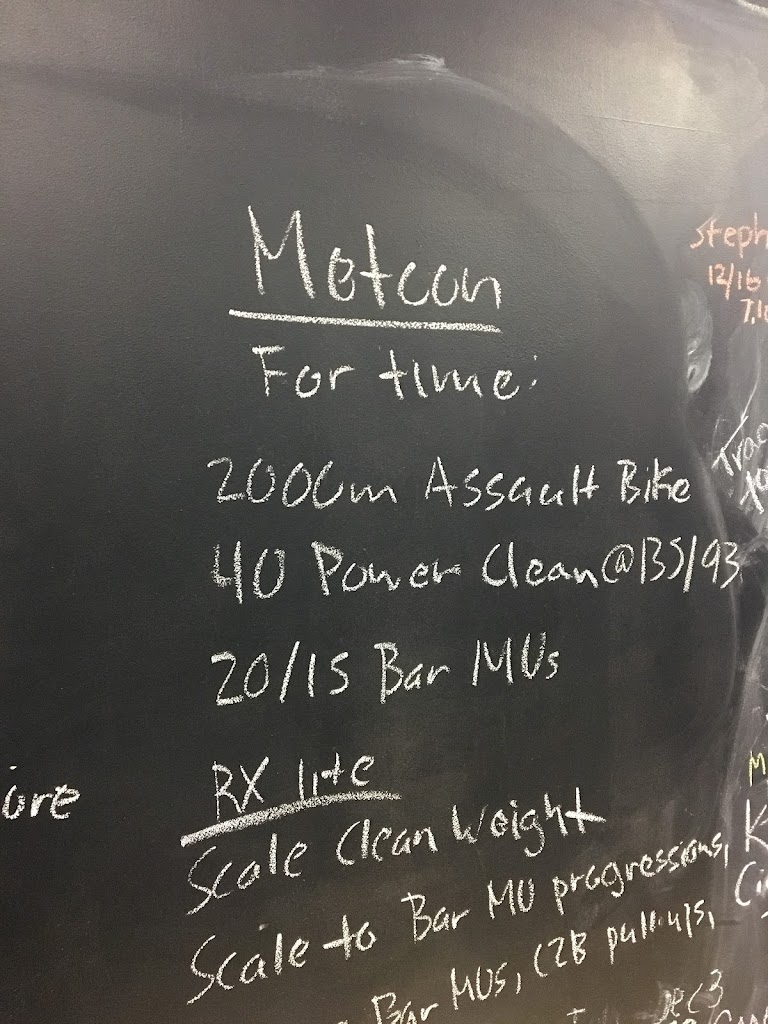 Metcon
For time:
2000m Assault Bike
40 Power Clean @ 135/93
20/15 Bar MUs
RX lite
Scale Clean Weight
Scale to Bar MU progressions,
Bar MUs, C2B pull-ups,
ore
Steph
12/16
7:10
Dec 3